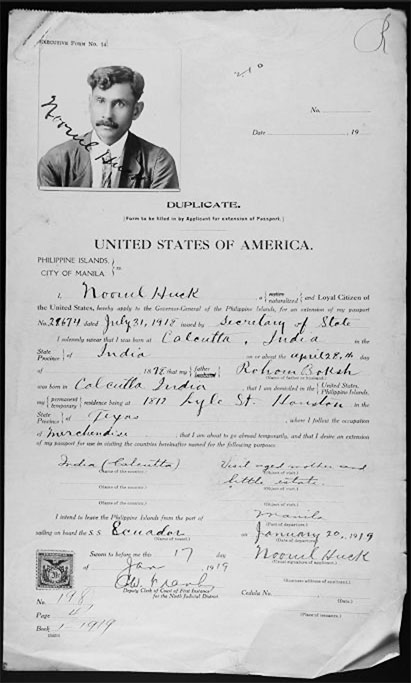 EXECUTIVE FORM No. 14
Noorul Huck
No.
Date , 19
DUPLICATE.
[Form to be filled in by Applicant for extension of Passport.]
UNITED STATES OF AMERICA.
PHILIPPINE ISLANDS,
CITY OF MANILA. } ss
I, Noorul Huck, a { native naturalized } and Loyal Citizen of
the United States, hereby apply to the Governor-General of the Philippine Islands, for an extension of my passport
No. 28674 dated July 31, 1918 issued by Secretary of State
I solemnly swear that I was born at Calcutta, India in the
State Province } of India on or about the April 28th day
of 1878 that my { father husband } Rohom Boksh
(Name of father or husband)
was born in Calcutta India, that I am domiciled in the { United States, Philippine Islands,
my { permanent temporary } residence being at 1817 Lyle St. Houston in the
State Province } of Texas, where I follow the occupation
of merchandise, that I am about to go abroad temporarily, and that I desire an extension
of my passport for use in visiting the countries hereinafter named for the following purposes:
India (Calcutta) Visit aged mother and
(Name of the country) little estate.
(Name of the country) (Object of visit)
(Name of the country) (Object of visit)
I intend to leave the Philippine Islands from the port of Manila
(Port of departure)
sailing on board the S.S. Ecuador on January 20, 1919
(Name of vessel) (Date of departure)
Sworn to before me this 17 day Noorul Huck
(Usual signature of applicant)
of Jan 1919
(Alternate address of applicant)
Deputy Clerk of Court of First Instance
for the Ninth Judicial District
Cedula No. (Date)
(Place of issuance)
No. 198
Page
Book 1-1919